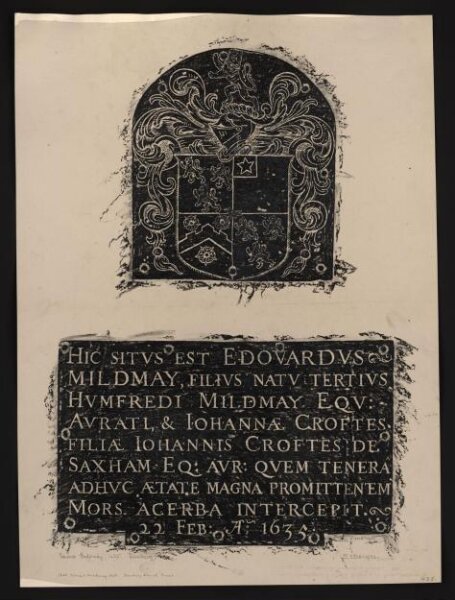 HIC SITVS EST EDOVARDVS
MILDMAY, FILIVS NATV TERTIVS
HVMFREDI MILDMAY EQV:
AVRATI, & IOHANNÆ CROFTES
FILIÆ IOHANNIS CROFTES DE
SAXHAM EQ: AVR: QVEM TENERA
ADHVC ÆTATE MAGNA PROMITTENEM
MORS ACERBA INTERCEPIT.
22 FEB: A: 1635